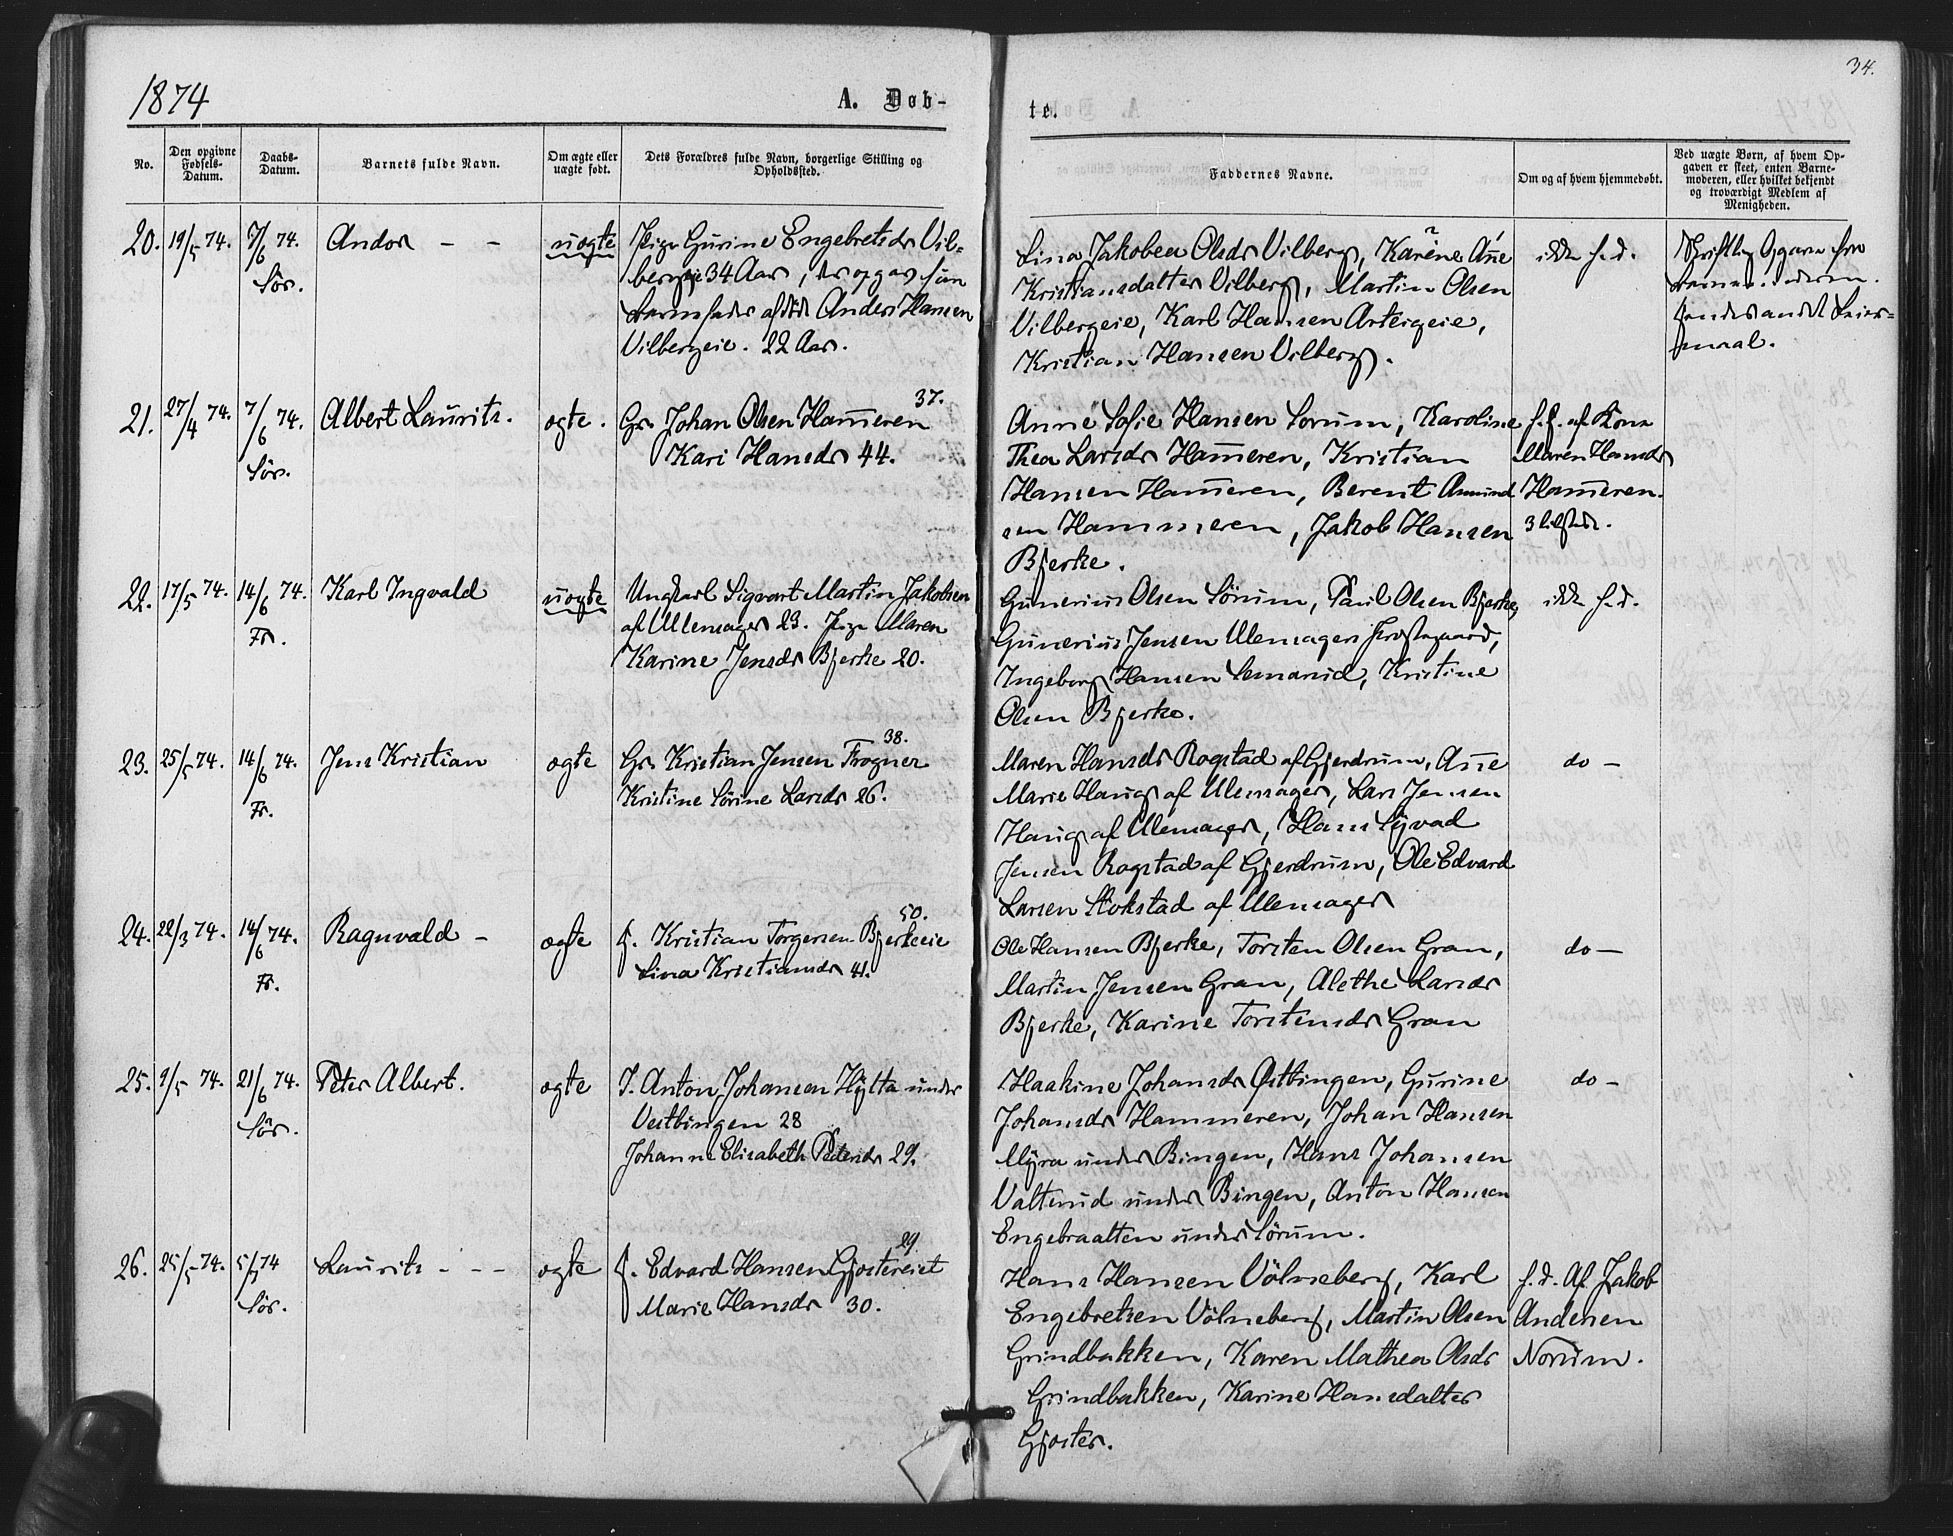 1874
A. Døb-
te.
34.
No.
Den opgivne Fødsels-Datum.
Daabs-Datum.
Barnets fulde Navn.
Om ægte eller uægte født.
Dets Forældres fulde Navn, borgerlige Stilling og Opholdssted.
Faddernes Navne.
Om og af hvem hjemmedøbt.
Ved uægte Børn, af hvem Op-
gaven er skeet, enten Barne-
moderen, eller hvilket bekjendt
og troværdigt Medlem af
Menigheden.
20. 19/5 74. 7/6 74. Sør.
Andor - -
uægte
Pige Gurine Engebretsdr Vil-
bergeie 34 Aar, der opgav som
Barnefader Anders Hansen
Vilbergeie. 22 Aar.
Lina Jakobea Olsdr Vilberg, Karine Anne
Kristiansdatter Vilberg, Martin Olsen
Vilbergeie, Karl Hansen Arteigeie,
Kristian Hansen Vilberg.
ikke h. d.
Skriftlig Opgave fra
Barnemoderen.
hendes andet Leier-
maal.
21. 27/4 74. 7/6 74. Sør.
Albert Laurits.
ægte.
Gr. Johan Olsen Hammeren 37.
Kari Hansdr 44.
Anne Sofie Hansen Sorum, Karoline
Thea Larsdr Hammeren, Kristian
Hansen Hammeren, Berent Amund
sen Hammeren, Jakob Hansen
Bjerke.
h. d. af Kone
Maren Hansdr
Hammeren.
22. 17/5 74. 14/6 74. Fr.
Karl Ingvald
uægte
Ungkarl Sigvart Martin Jakobsen
af Ullensager 23. Pige Maren
Karine Jensdr Bjerke 20.
Gunerius Olsen Sörum, Paul Olsen Bjerke,
Gunerius Jensen Ulensager
Ingeborg Hansen Kristine
Olsen Bjerke.
ikke h. d.
23. 25/5 74. 14/6 74. Fr.
Jens Kristian
ægte
Gr. Kristian Jensen Frogner 38.
Kristine Sörine Larsdr 26.
Maren Hansdr Rogstad af Gjerdrum, Anne
Marie Haug af Ulensager, Lars Jensen
Haug af Ulensager, Hans Syvad
Jensen Rogstad af Gjerdrum, Ole Edvard
Larsen Stokstad af Ulensager
do -
24. 22/3 74. 14/6 74. Fr.
Ragnvald -
ægte
J. Kristian Torgersen Bjerkeeie 50.
Lina Kristiansdr 41.
Ole Hansen Bjerke, Torsten Olsen Gran,
Martin Jensen Gran, Alethe Larsdr
Bjerke, Karine Torstensdr Gran
do -
25. 9/5 74. 21/6 74. Sör.
Peter Albert.
ægte
I. Anton Johansen Hytta under
Vestbingen 28
Johanne Elisabeth Pedersdr 29.
Haakine Johansdr Østbingen, Gurine
Johansdr Hammeren, Johan Hansen
Myra under Bingen, Hans Johansen
Valterud under Bingen, Anton Hansen
Engebraatten under Sörum.
do -
26. 25/5 74. 5/7 74 Sör.
Laurits - - -
ægte
J. Edvard Hansen Gjostereiet 29.
Marie Hansdr 30.
Hans Hansen Völneberg, Karl
Engebretsen Völneberg, Martin Olsen
Grindbakken, Karen Mathea Olsdr
Grindbakken, Karine Hansdatter
Gjoster.
h. d. Af Jakob
Andersen
Norum.